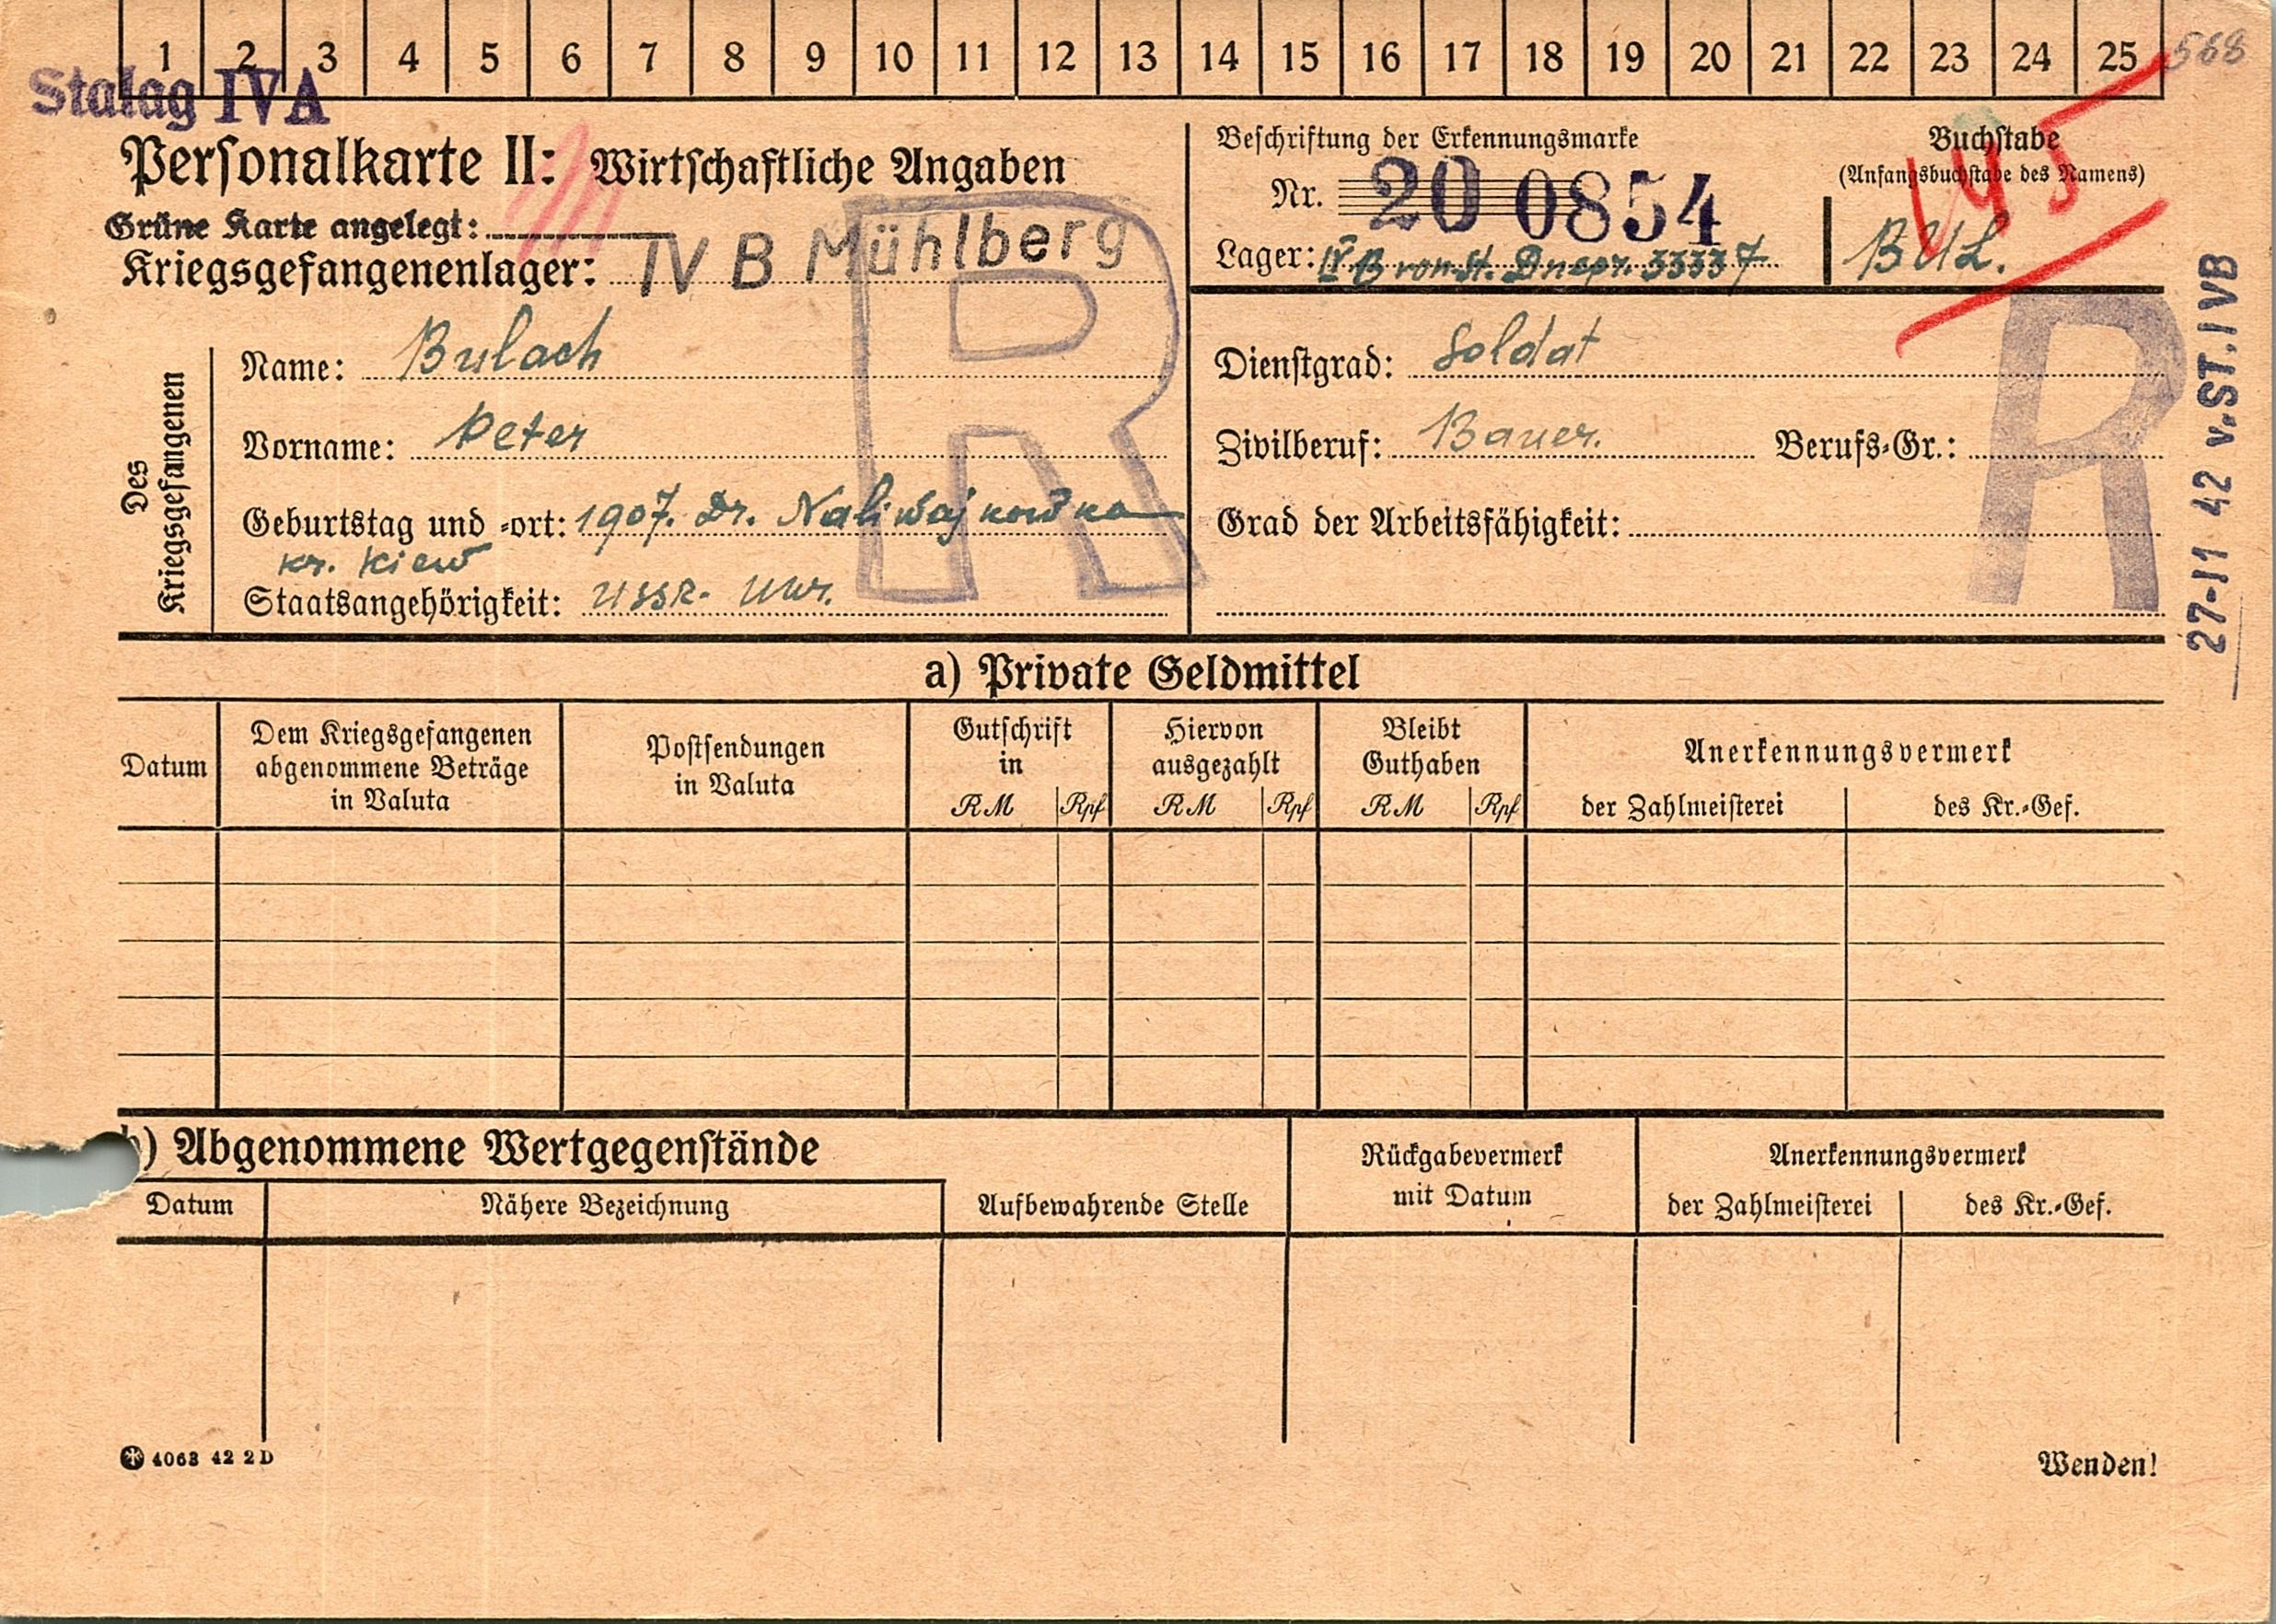 1 2 3 4 5 6 7 8 9 10 11 12 13 14 15 16 17 18 19 20 21 22 23 24 25
568
Stalag IVA
Personalkarte II: Wirtschaftliche Angaben
Grüne Karte angelegt:
Kriegsgefangenenlager: IV B Mühlberg
Beschriftung der Erkennungsmarke
Nr. 200854
Lager: IV B von St. Dnepr. 33337
Buchstabe
(Anfangsbuchstabe des Namens)
BUL.
R
R
27-11 42 v.ST.IVB
Des Kriegsgefangenen
Name: Bulach
Vorname: Peter
Geburtstag und -ort: 1907. Dr. Naliwajkowka
kr. Kiew
Staatsangehörigkeit: USSR. Ukr.
Dienstgrad: Soldat
Zivilberuf: Bauer. Berufs-Gr.:
Grad der Arbeitsfähigkeit:
a) Private Geldmittel
Datum
Dem Kriegsgefangenen abgenommene Beträge in Valuta
Postsendungen in Valuta
Gutschrift in
RM Rpf
Hiervon ausgezahlt
RM Rpf
Bleibt Guthaben
RM Rpf
Anerkennungsvermerk
der Zahlmeisterei des Kr.-Gef.
b) Abgenommene Wertgegenstände
Datum
Nähere Bezeichnung
Aufbewahrende Stelle
Rückgabevermerk
mit Datum
Anerkennungsvermerk
der Zahlmeisterei des Kr.-Gef.
4063 42 2 D
Wenden!